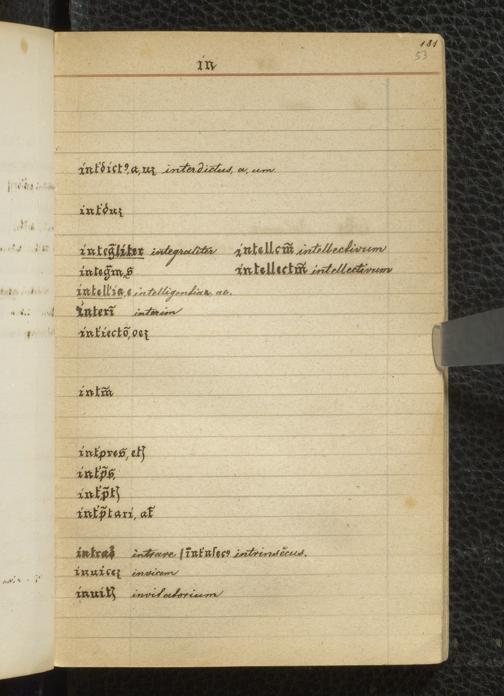 181
53
in
int̄dict⁹, a, uꝫ interdictus, a, um
int̄duꝫ
integ̃liter integraliter intellc̃m̃ intellectivum
integ̃m, s intellectm̃ intellectivum
intell'ia, e intelligentiae ae.
interĩ interim
int̄iectõ, oeꝫ
intm̃
int̄pres, etꝫ
int̄p̃s,
int̄p̃tꝫ
int̄p̃tari, at̄
intrar̃ intrare | ĩt̃nsec⁹ intrinsecus.
inuiceꝫ invicem
inuitꝫ invitatorium